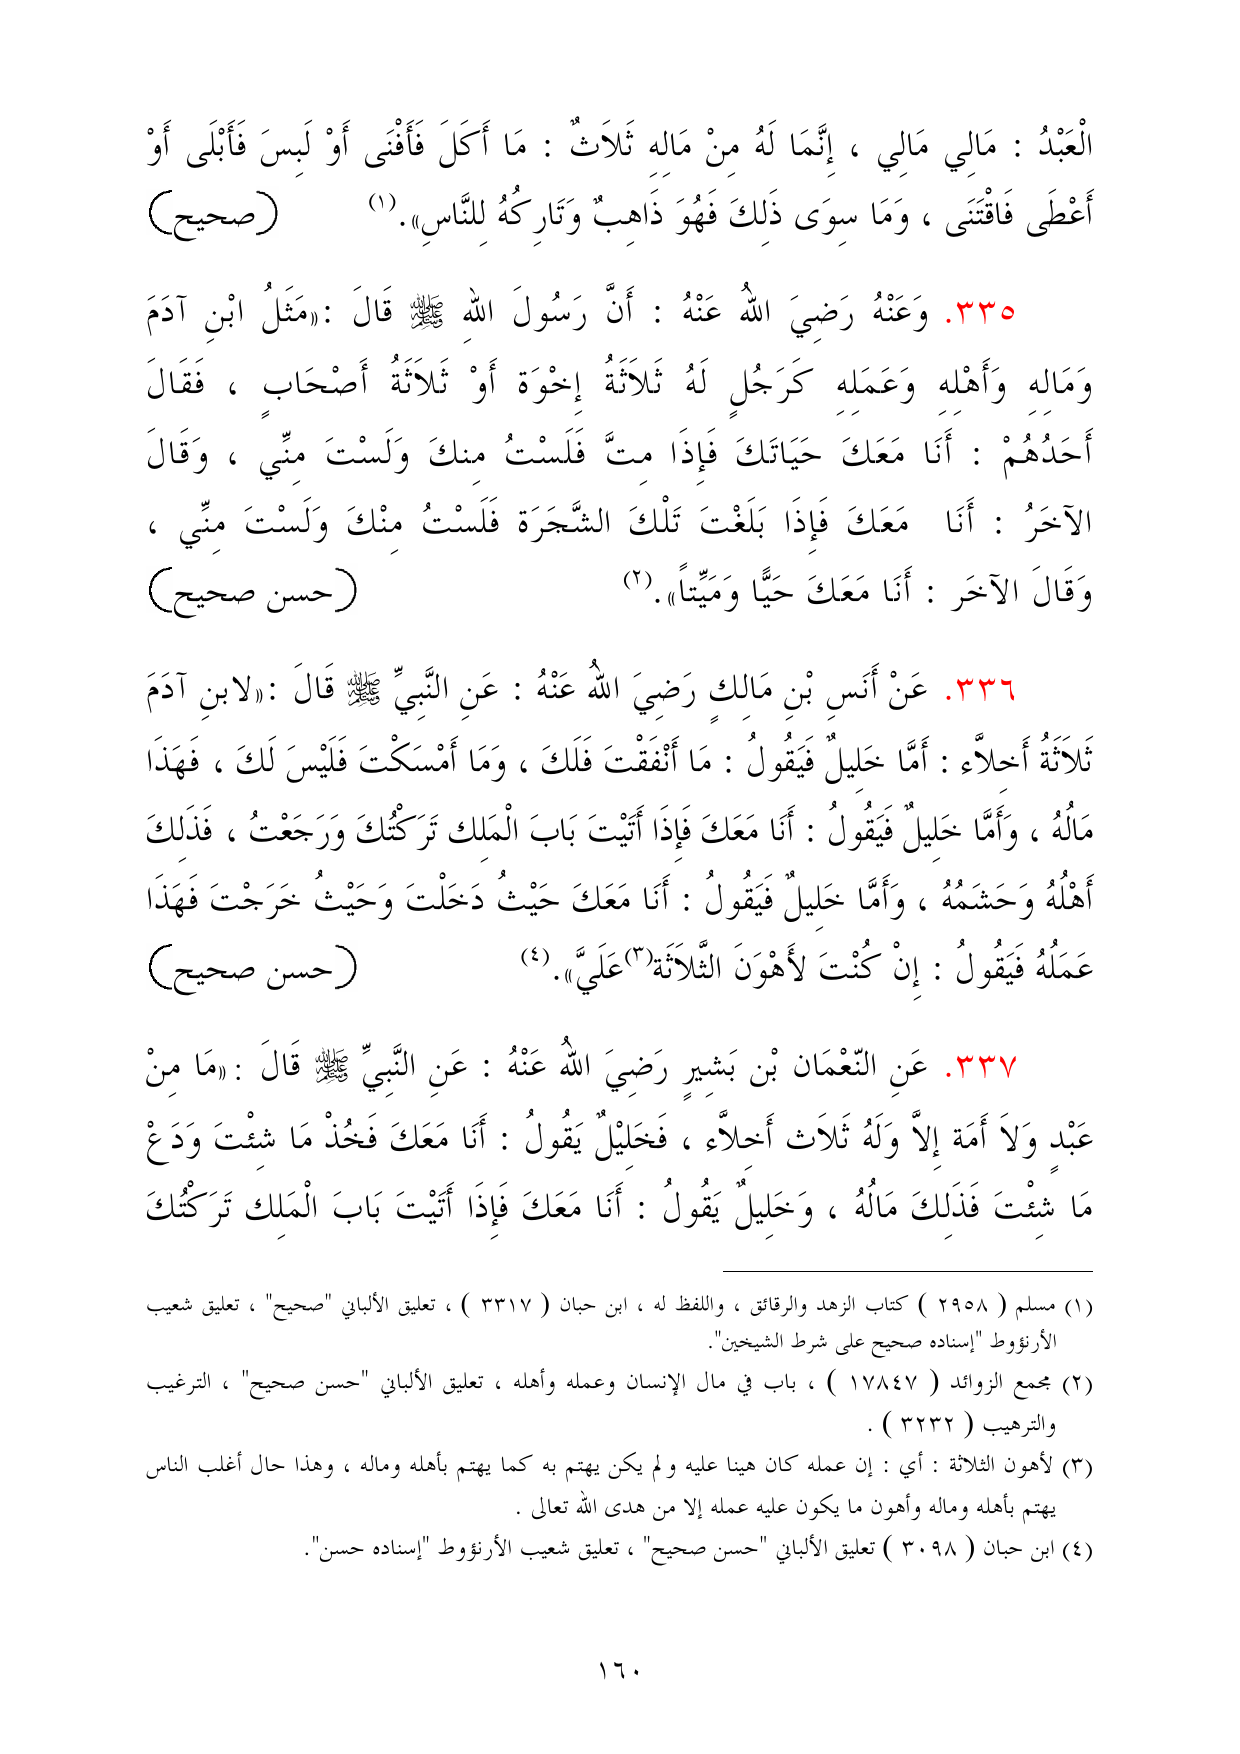 الْعَبْدُ : مَالِي مَالِي ، إِنَّمَا لَهُ مِنْ مَالِهِ ثَلاَثٌ : مَا أَكَلَ فَأَفْنَى أَوْ لَبِسَ فَأَبْلَى أَوْ
أَعْطَى فَاقْتَنَى ، وَمَا سِوَى ذَلِكَ فَهُوَ ذَاهِبٌ وَتَارِكُهُ لِلنَّاسِ».(١) (صحيح)
٣٣٥. وَعَنْهُ رَضِيَ اللهُ عَنْهُ : أَنَّ رَسُولَ اللهِ ﷺ قَالَ :«مَثَلُ ابْنِ آدَمَ
وَمَالِهِ وَأَهْلِهِ وَعَمَلِهِ كَرَجُلٍ لَهُ ثَلاَثَةُ إِخْوَة أَوْ ثَلاَثَةُ أَصْحَابٍ ، فَقَالَ
أَحَدُهُمْ : أَنَا مَعَكَ حَيَاتَكَ فَإِذَا مِتَّ فَلَسْتُ مِنكَ وَلَسْتَ مِنِّي ، وَقَالَ
الآخَرُ : أَنَا مَعَكَ فَإِذَا بَلَغْتَ تَلْكَ الشَّجَرَة فَلَسْتُ مِنْكَ وَلَسْتَ مِنِّي ،
وَقَالَ الآخَر : أَنَا مَعَكَ حَيًّا وَمَيِّتاً».(٢) (حسن صحيح)
٣٣٦. عَنْ أَنَسِ بْنِ مَالِكٍ رَضِيَ اللهُ عَنْهُ : عَنِ النَّبِيِّ ﷺ قَالَ :«لابنِ آدَمَ
ثَلاَثَةُ أَخِلاَّء : أَمَّا خَلِيلٌ فَيَقُولُ : مَا أَنْفَقْتَ فَلَكَ ، وَمَا أَمْسَكْتَ فَلَيْسَ لَكَ ، فَهَذَا
مَالُهُ ، وَأَمَّا خَلِيلٌ فَيَقُولُ : أَنَا مَعَكَ فَإِذَا أَتَيْتَ بَابَ الْمَلِك تَرَكْتُكَ وَرَجَعْتُ ، فَذَلِكَ
أَهْلُهُ وَحَشَمُهُ ، وَأَمَّا خَلِيلٌ فَيَقُولُ : أَنَا مَعَكَ حَيْثُ دَخَلْتَ وَحَيْثُ خَرَجْتَ فَهَذَا
عَمَلُهُ فَيَقُولُ : إِنْ كُنْتَ لأَهْوَنَ الثَّلاَثَة(٣)عَلَيَّ».(٤) (حسن صحيح)
٣٣٧. عَنِ النّعْمَان بْن بَشِيرٍ رَضِيَ اللهُ عَنْهُ : عَنِ النَّبِيِّ ﷺ قَالَ :«مَا مِنْ
عَبْدٍ وَلاَ أَمَة إِلاَّ وَلَهُ ثَلاَث أَخِلاَّء ، فَخَلِيْلٌ يَقُولُ : أَنَا مَعَكَ فَخُذْ مَا شِئْتَ وَدَعْ
مَا شِئْتَ فَذَلِكَ مَالُهُ ، وَخَلِيلٌ يَقُولُ : أَنَا مَعَكَ فَإِذَا أَتَيْتَ بَابَ الْمَلِك تَرَكْتُكَ
(١) مسلم ( ٢٩٥٨ ) كتاب الزهد والرقائق ، واللفظ له ، ابن حبان ( ٣٣١٧ ) ، تعليق الألباني "صحيح" ، تعليق شعيب
الأرنؤوط "إسناده صحيح على شرط الشيخين".
(٢) مجمع الزوائد ( ١٧٨٤٧ ) ، باب في مال الإنسان وعمله وأهله ، تعليق الألباني "حسن صحيح" ، الترغيب
والترهيب ( ٣٢٣٢ ) .
(٣) لأهون الثلاثة : أي : إن عمله كان هينا عليه و لم يكن يهتم به كما يهتم بأهله وماله ، وهذا حال أغلب الناس
يهتم بأهله وماله وأهون ما يكون عليه عمله إلا من هدى الله تعالى .
(٤) ابن حبان ( ٣٠٩٨ ) تعليق الألباني "حسن صحيح" ، تعليق شعيب الأرنؤوط "إسناده حسن".
١٦٠